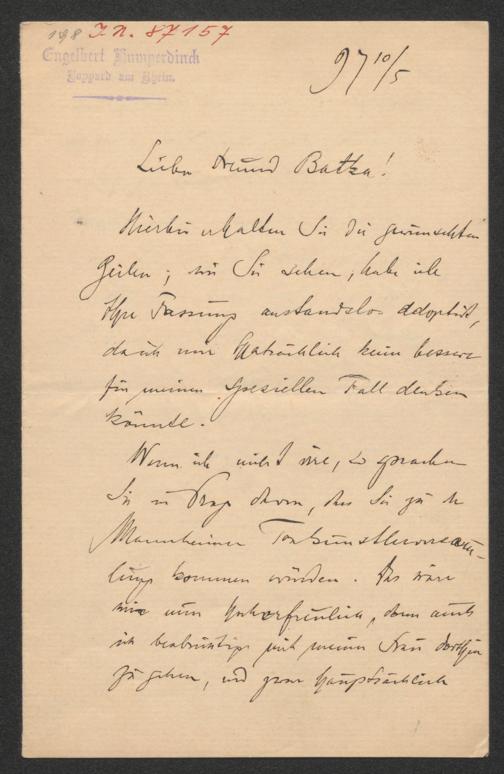 198 I.N. 87157
Engelbert Humperdinck
Boppard am Rhein.
97 10/5
Lieber Freund Batka!
Hierbei erhalten Sie die gewünschten
Zeilen; wie Sie sehen, habe ich
Ihre Fassung anstandslos adoptirt,
da ich mir thatsächlich keine bessere
für meinen speziellen Fall denken
könnte.
Wenn ich nicht irre, so sprachen
Sie in Prag davon, dass Sie zu der
Mannheimer Tonkünstlerversamm-
lung kommen würden. Das wäre
mir nun hocherfreulich, denn auch
ich beabsichtige mit meiner Frau dorthin
zu gehen, und zwar hauptsächlich